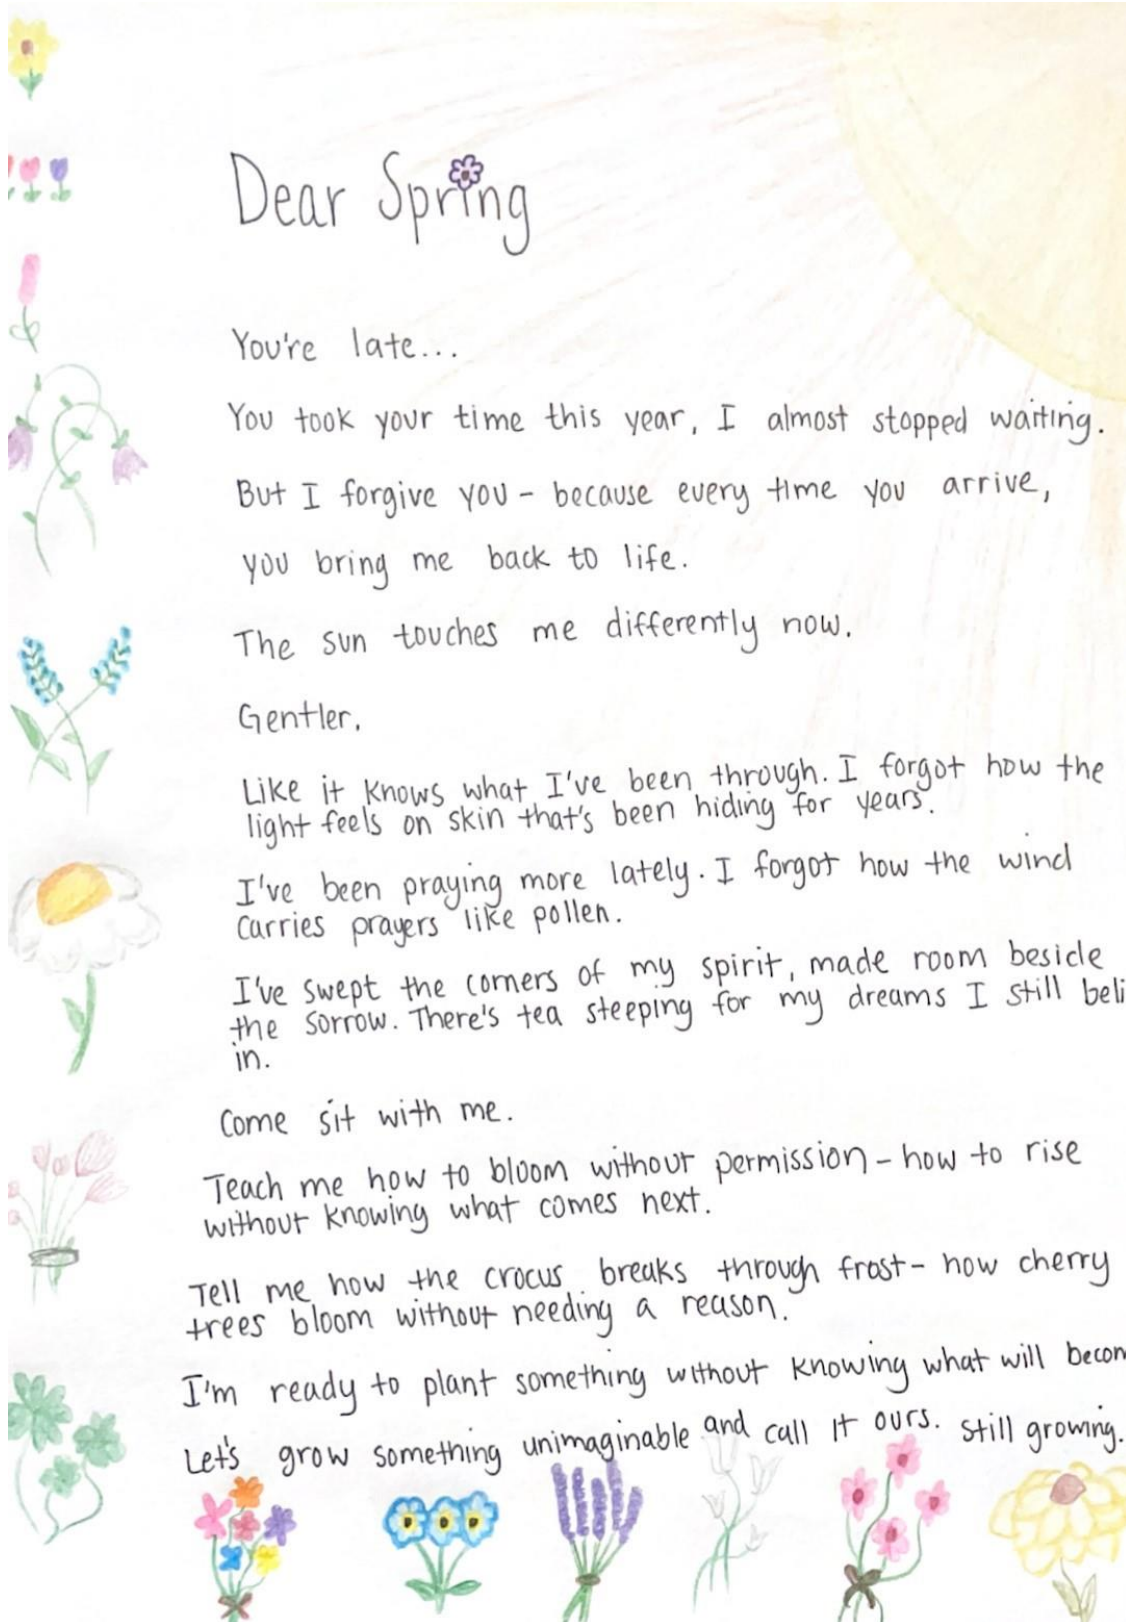 Dear Spring
You're late...
You took your time this year, I almost stopped waiting.
But I forgive you - because every time you arrive,
you bring me back to life.
The sun touches me differently now.
Gentler.
Like it knows what I've been through. I forgot how the
light feels on skin that's been hiding for years.
I've been praying more lately. I forgot how the wind
carries prayers like pollen.
I've swept the corners of my spirit, made room beside
the sorrow. There's tea steeping for my dreams I still beli
in.
Come sit with me.
Teach me how to bloom without permission - how to rise
without knowing what comes next.
Tell me how the crocus breaks through frost - how cherry
trees bloom without needing a reason.
I'm ready to plant something without knowing what will becom
Let's grow something unimaginable and call it ours. Still growing.